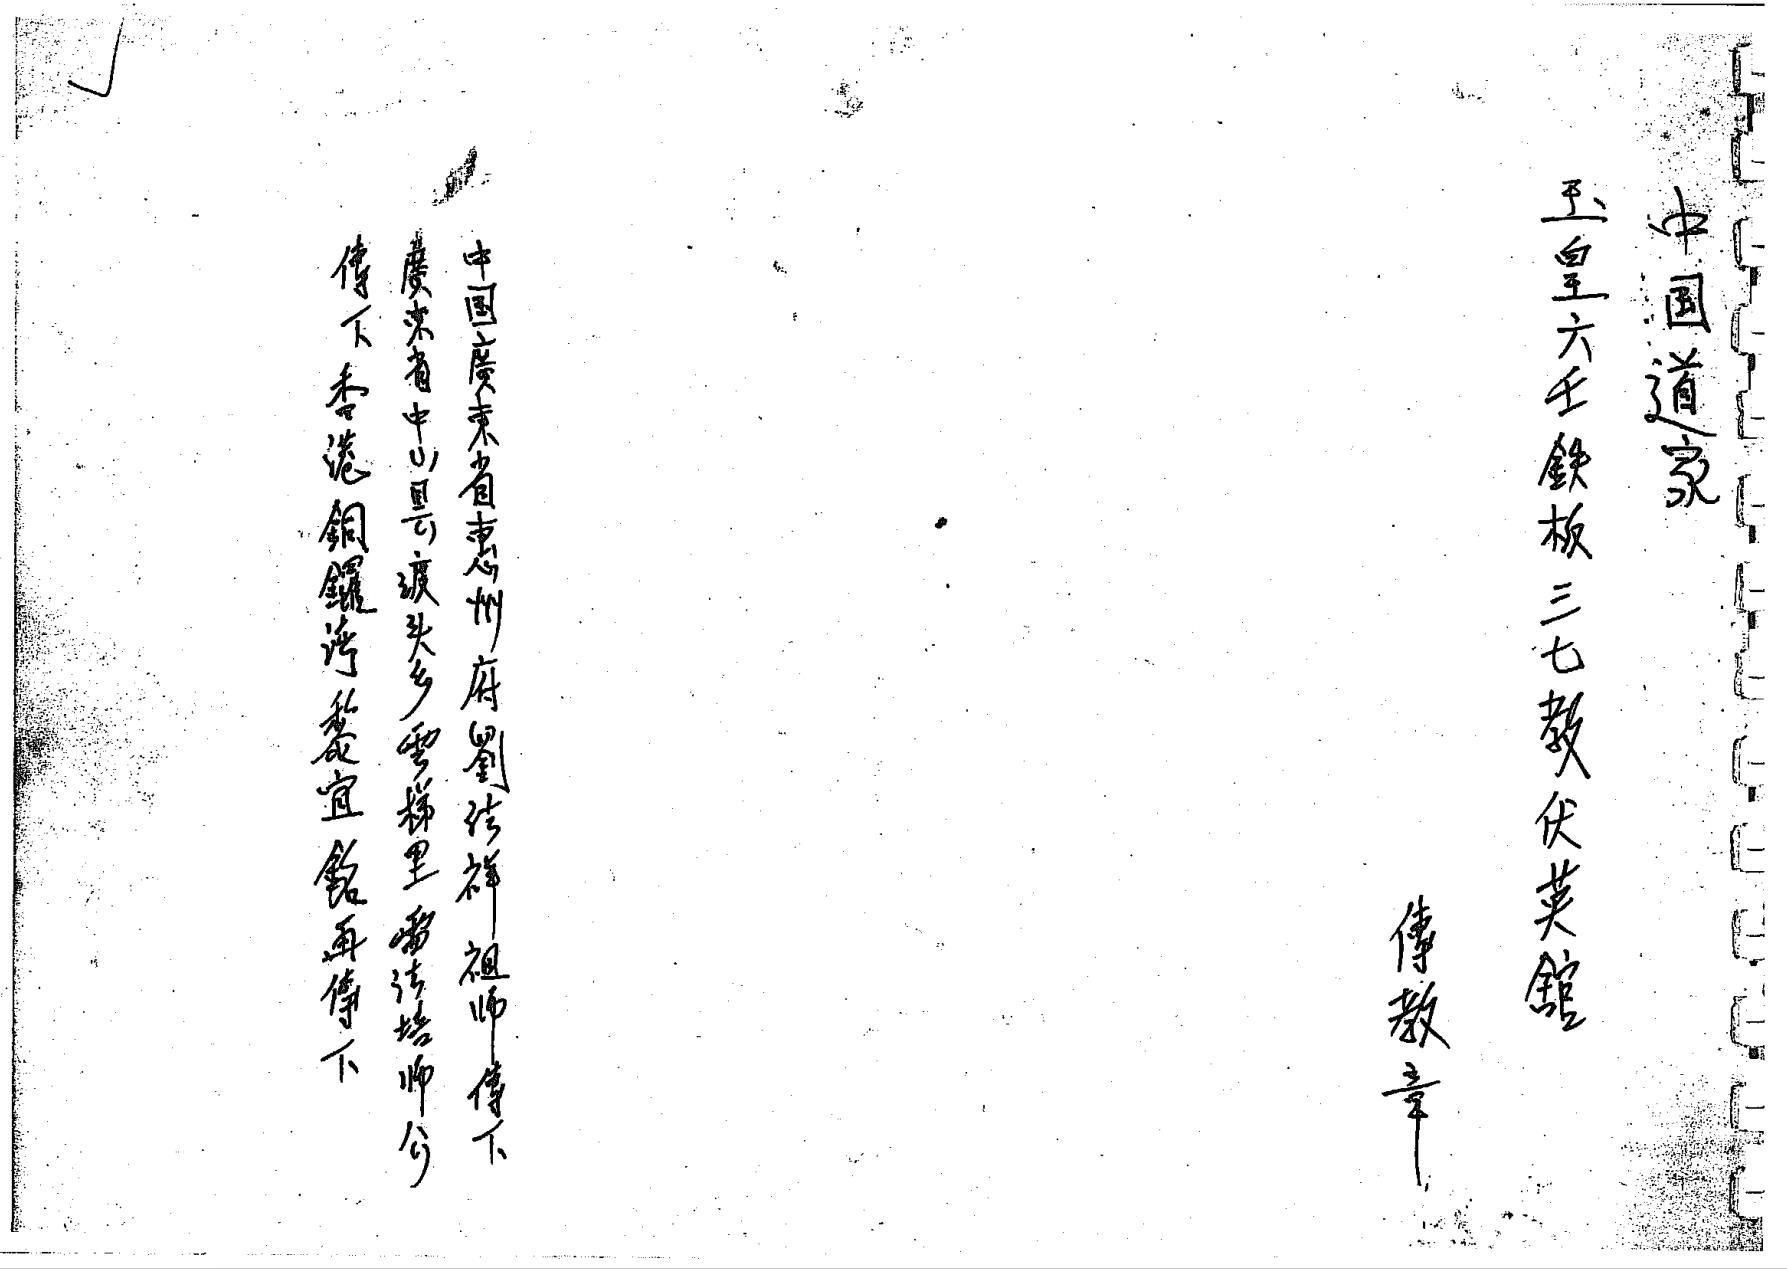 中国道家
玉皇六壬鉄板三七教伏英館
傳教章
中国廣東省惠州府劉法祥祖师傳下
廣東省中山县渡头乡雲梯里雷法培师公
傳下香港銅鑼湾黎宜銘再傳下